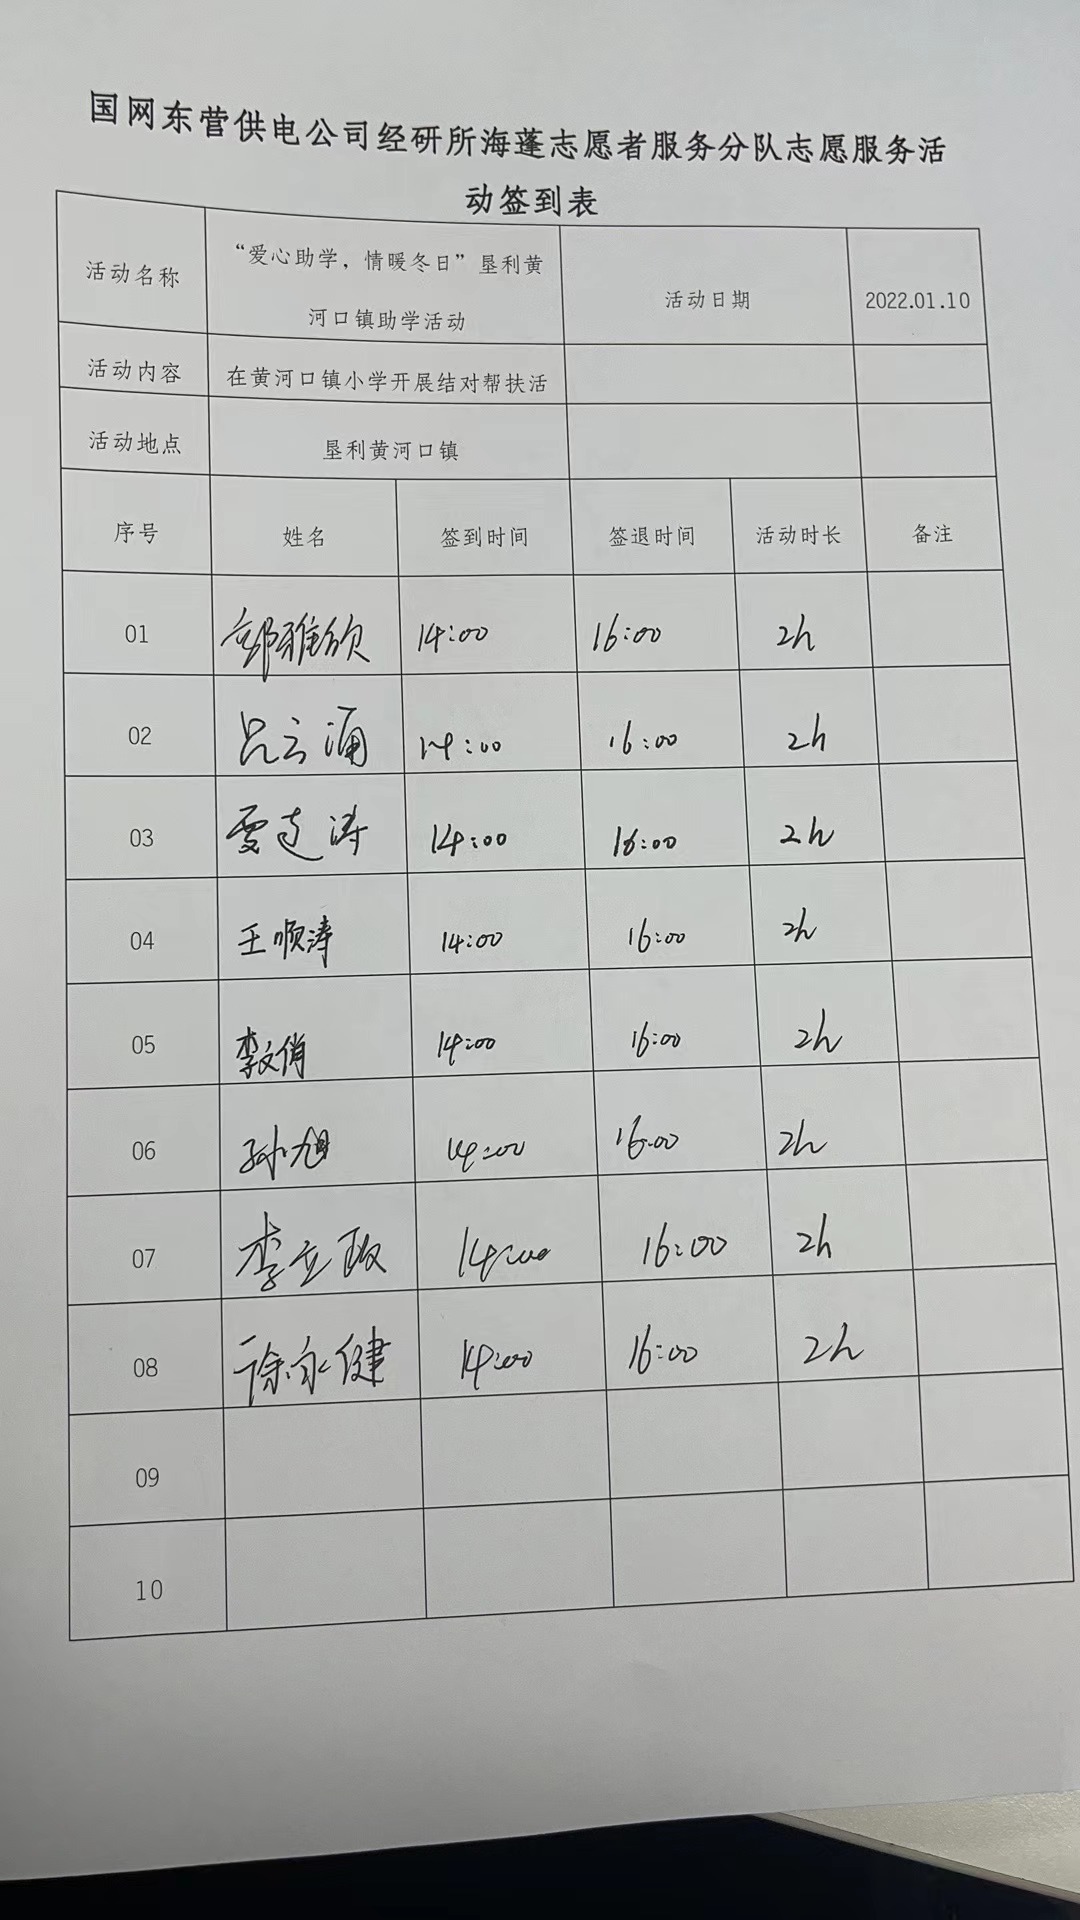 国网东营供电公司经研所海蓬志愿者服务分队志愿服务活
动签到表
活动名称 “爱心助学，情暖冬日”垦利黄 活动日期 2022.01.10
河口镇助学活动
活动内容 在黄河口镇小学开展结对帮扶活
活动地点 垦利黄河口镇
序号 姓名 签到时间 签退时间 活动时长 备注
01 雅欣 14:00 16:00 2h
02 吕云涌 14:00 16:00 2h
03 14:00 16:00 2h
04 王顺涛 14:00 16:00 2h
05 李文俏 14:00 16:00 2h
06 孙旭 14:00 16:00 2h
07 李立 14:00 16:00 2h
08 徐永健 14:00 16:00 2h
09
10